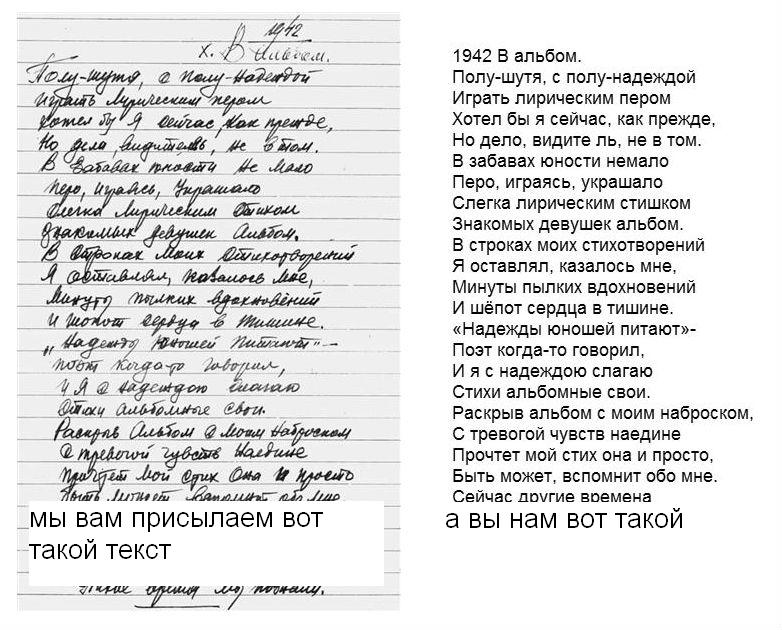 1942
х. В Альбом.
Полу-шутя, с полу-надеждой
Играть лирическим пером
Хотел бы я сейчас, как прежде,
Но дела, видитель, не в том.
В забавах юности не мало
Перо, играясь, украшало
Слегка лирическим стиком
Знакомых девушек альбом.
В строках моих стихотворений
Я оставлял, казалось мне,
Минуты пылких вдохновений
И шопот сердца в тишине.
„Надежды юношей питают" –
поэт когда-то говорил,
И я с надеждою слагаю
Стихи альбомные свои.
Раскрыв альбом с моим наброском
С тревогой чувств наедине
Прочтет мой стих она и просто
Быть может вспомнит обо мне
мы вам присылаем вот
такой текст
время мы
1942 В альбом.
Полу-шутя, с полу-надеждой
Играть лирическим пером
Хотел бы я сейчас, как прежде,
Но дело, видите ль, не в том.
В забавах юности немало
Перо, играясь, украшало
Слегка лирическим стишком
Знакомых девушек альбом.
В строках моих стихотворений
Я оставлял, казалось мне,
Минуты пылких вдохновений
И шёпот сердца в тишине.
«Надежды юношей питают»-
Поэт когда-то говорил,
И я с надеждою слагаю
Стихи альбомные свои.
Раскрыв альбом с моим наброском,
С тревогой чувств наедине
Прочтет мой стих она и просто,
Быть может, вспомнит обо мне.
Сейчас другие времена
а вы нам вот такой